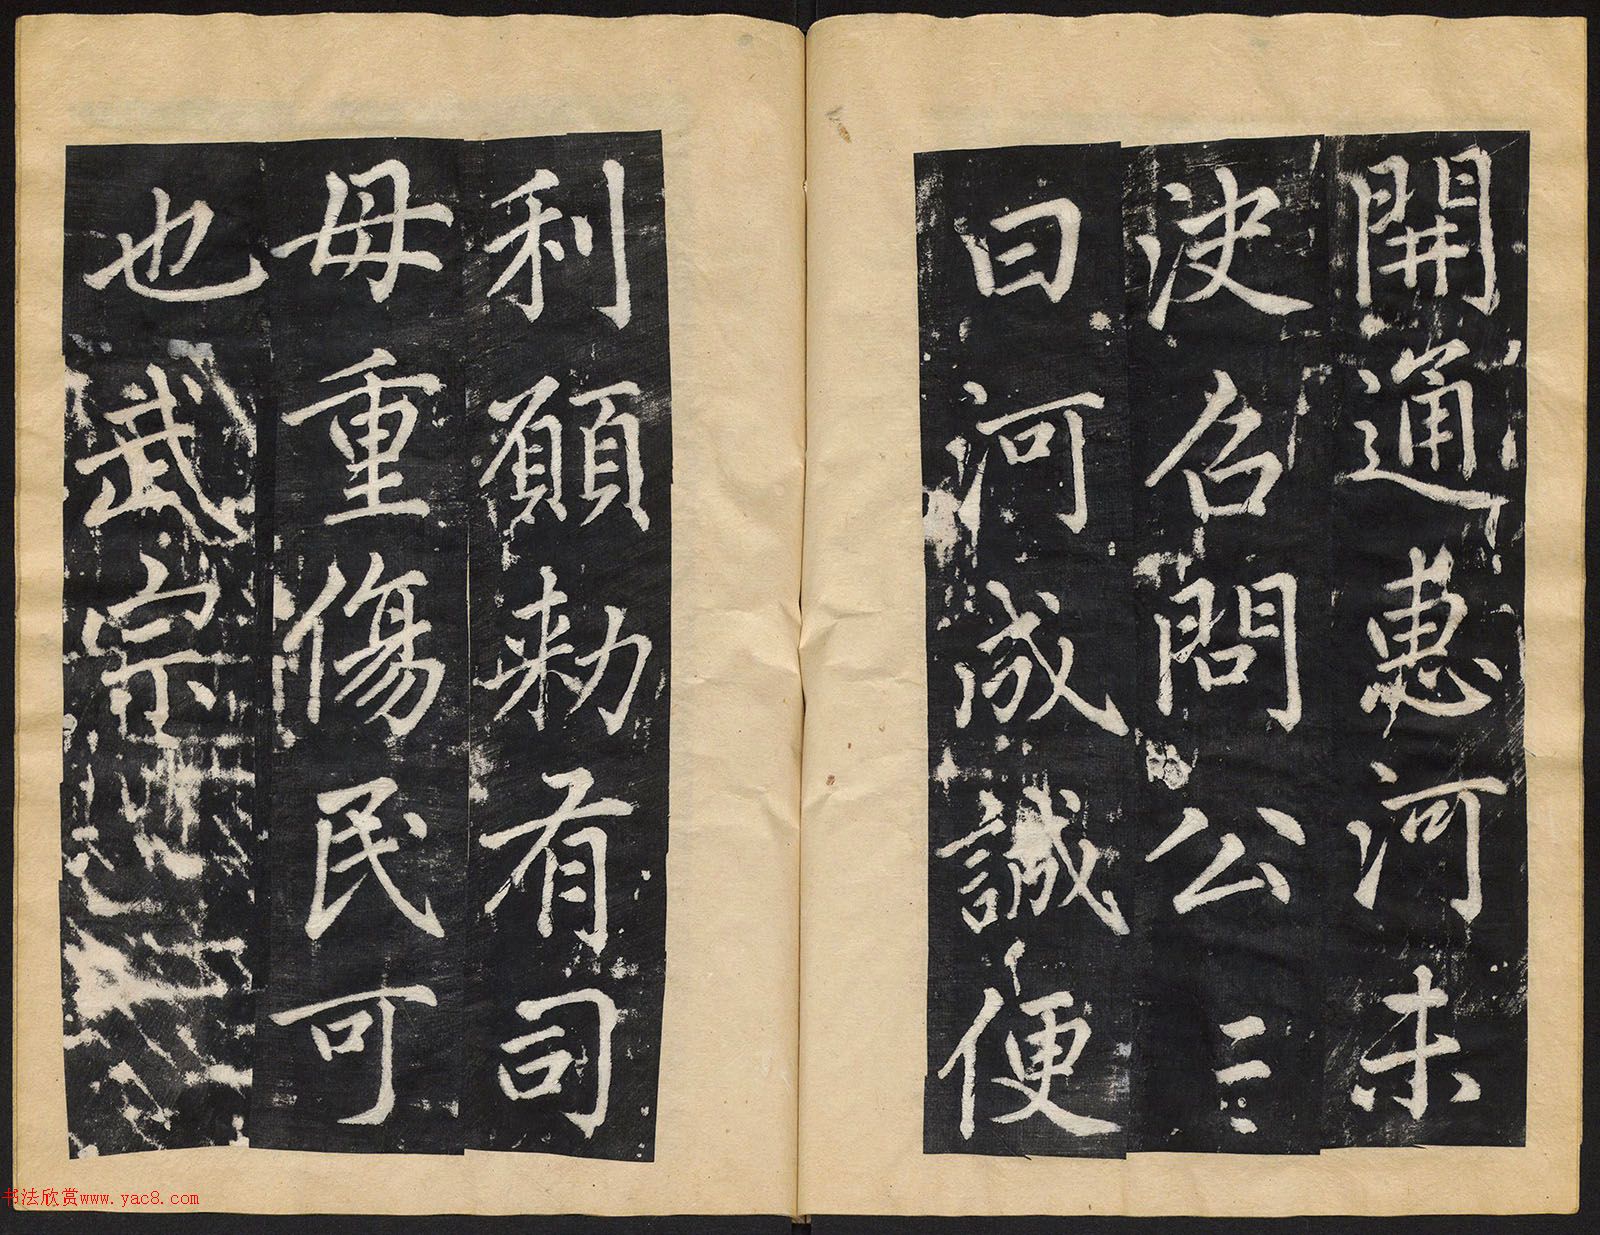 開通惠河未
决召問公〻
曰河成誠便
利願勑有司
毋重傷民可
也武宗
书法欣赏www.yac8.com